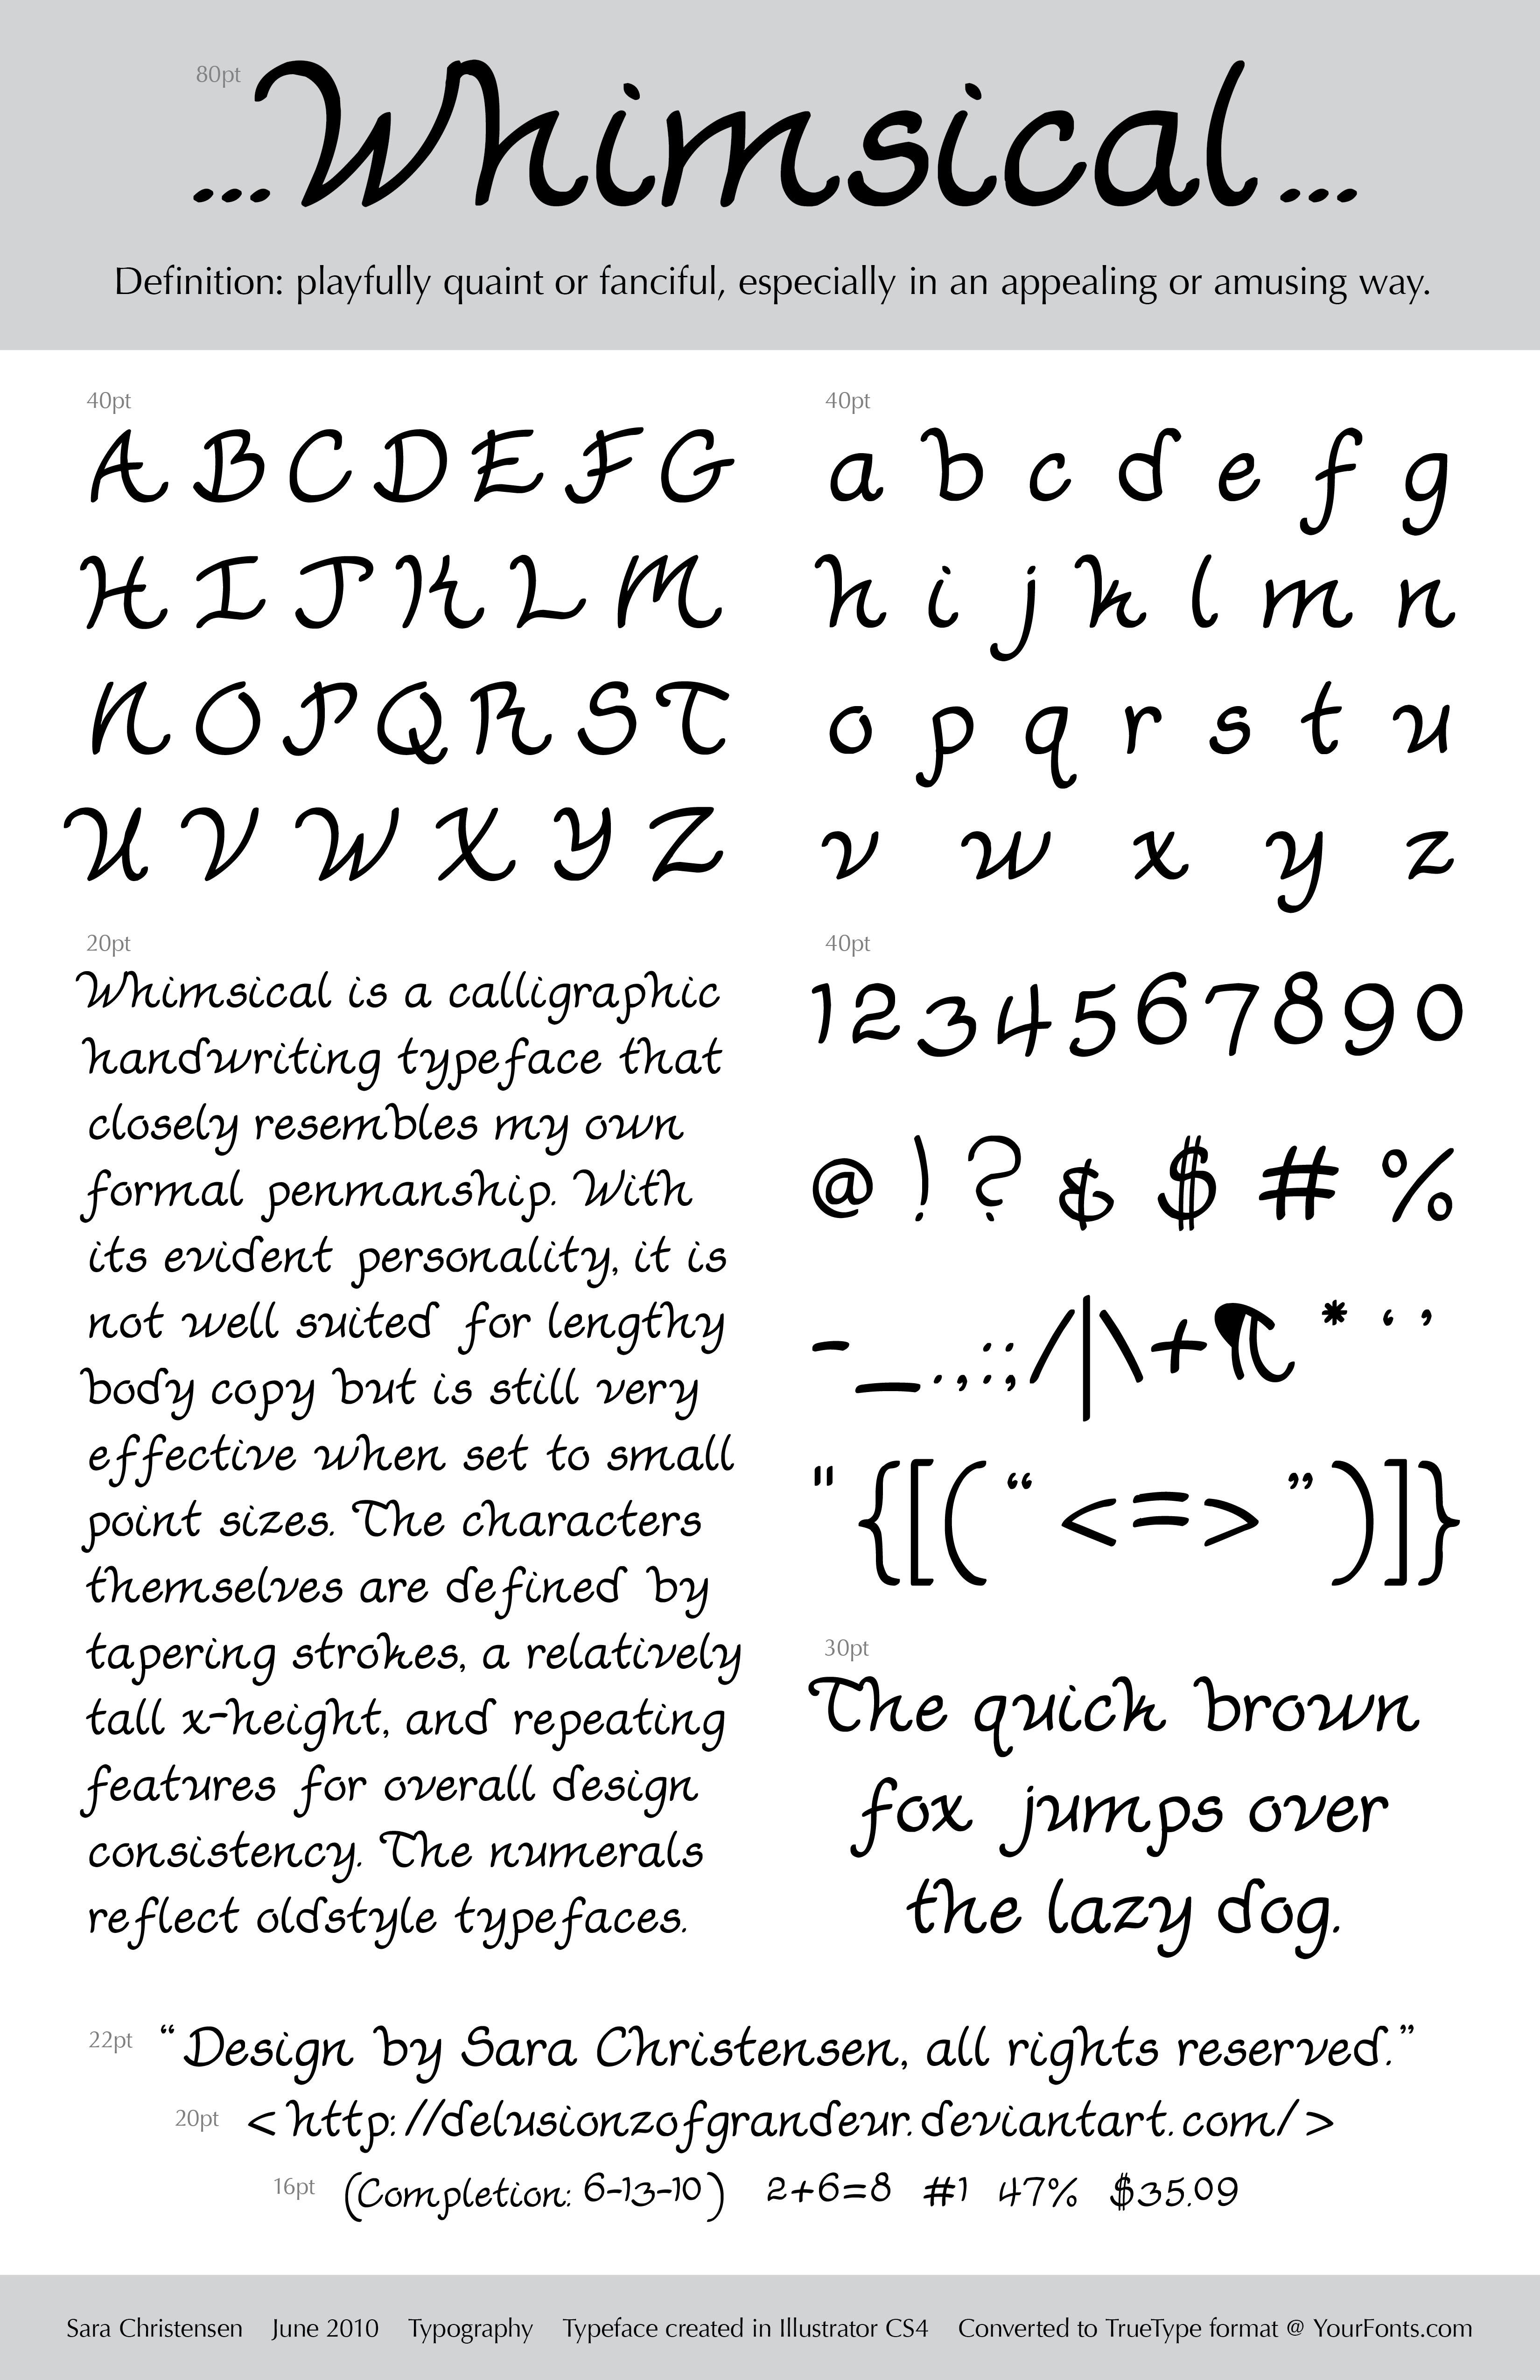 80pt
...Whimsical...
Definition: playfully quaint or fanciful, especially in an appealing or amusing way.
40pt
A B C D E F G
H I J K L M
N O P Q R S T
U V W X Y Z
40pt
a b c d e f g
h i j k l m n
o p q r s t u
v w x y z
20pt
Whimsical is a calligraphic
handwriting typeface that
closely resembles my own
formal penmanship. With
its evident personality, it is
not well suited for lengthy
body copy but is still very
effective when set to small
point sizes. The characters
themselves are defined by
tapering strokes, a relatively
tall x-height, and repeating
features for overall design
consistency. The numerals
reflect oldstyle typefaces.
40pt
1 2 3 4 5 6 7 8 9 0
@ ! ? & $ # %
- _ . , : ; / | \ + ¶ * ‘ ’
" { [ ( “ < = > ” ) ] }
30pt
The quick brown
fox jumps over
the lazy dog.
22pt
“Design by Sara Christensen, all rights reserved.”
20pt
<http://delusionzofgrandeur.deviantart.com/>
16pt
(Completion: 6-13-10) 2+6=8 #1 47% $35.09
Sara Christensen June 2010 Typography Typeface created in Illustrator CS4 Converted to TrueType format @ YourFonts.com